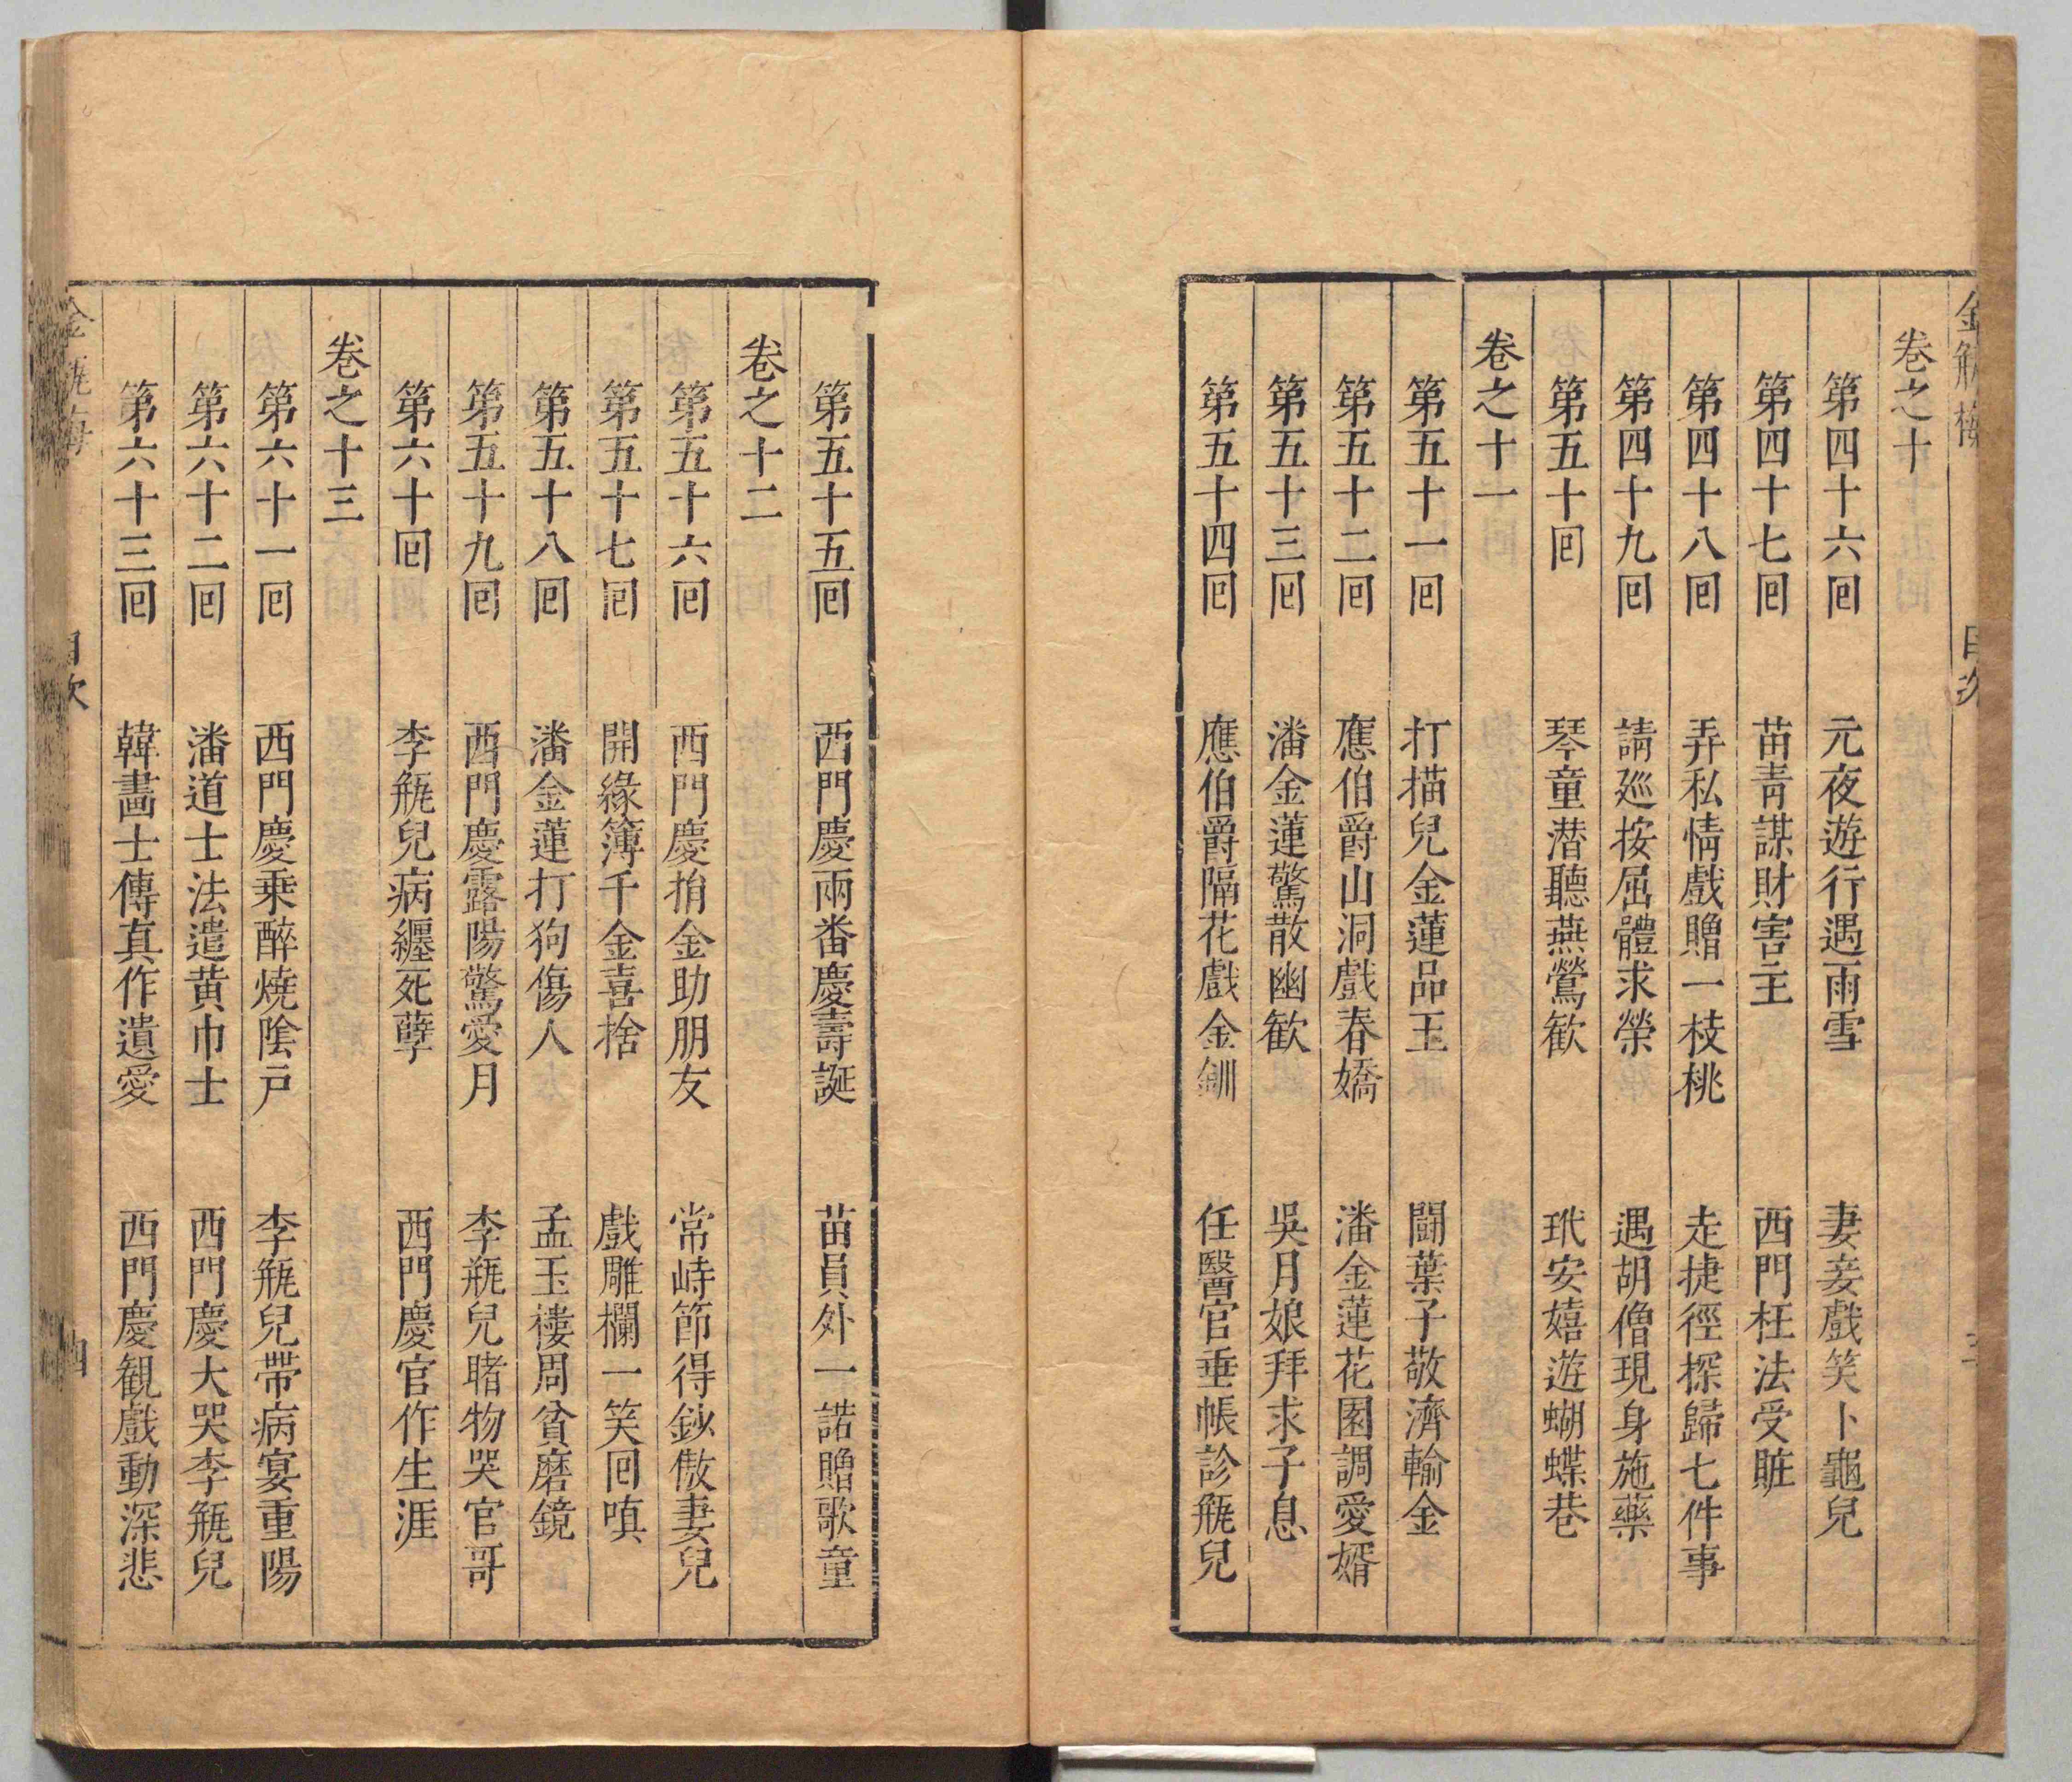 金瓶梅 目次
卷之十
第四十六回 元夜遊行遇雨雪 妻妾戲笑卜龜兒
第四十七回 苗青謀財害主 西門枉法受賍
第四十八回 弄私情戲贈一枝桃 走捷徑探歸七件事
第四十九回 請廵按屈體求榮 遇胡僧現身施藥
第五十回 琴童潜聽燕鶯歡 玳安嬉遊蝴蝶巷
卷之十一
第五十一回 打描兒金蓮品玉 鬪葉子敬濟輸金
第五十二回 應伯爵山洞戲春嬌 潘金蓮花園調愛婿
第五十三回 潘金蓮驚散幽歡 吳月娘拜求子息
第五十四回 應伯爵隔花戲金釧 任醫官垂帳診瓶兒
第五十五回 西門慶兩番慶壽誕 苗員外一諾贈歌童
卷之十二
第五十六回 西門慶捐金助朋友 常峙節得鈔傲妻兒
第五十七回 開緣簿千金喜捨 戲雕欄一笑回嗔
第五十八回 潘金蓮打狗傷人 孟玉樓周貧磨鏡
第五十九回 西門慶露陽驚愛月 李瓶兒睹物哭官哥
第六十回 李瓶兒病纏死孽 西門慶官作生涯
卷之十三
第六十一回 西門慶乘醉燒陰戶 李瓶兒帶病宴重陽
第六十二回 潘道士法遣黃巾士 西門慶大哭李瓶兒
第六十三回 韓畵士傳真作遺愛 西門慶観戲動深悲
金瓶梅 目次 四